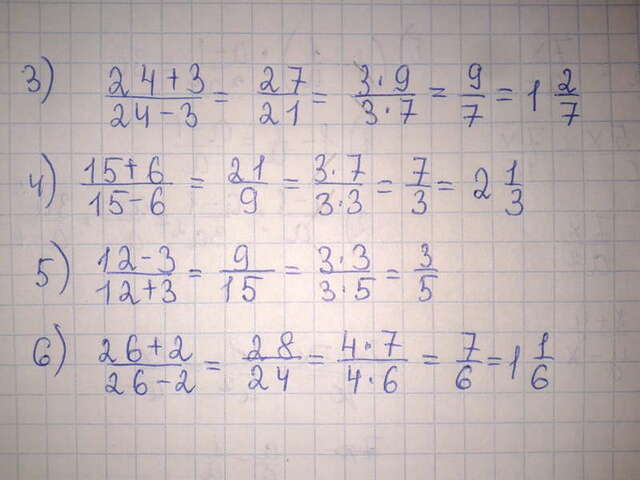 3) (24+3)/(24-3) = 27/21 = (3·9)/(3·7) = 9/7 = 1 2/7
4) (15+6)/(15-6) = 21/9 = (3·7)/(3·3) = 7/3 = 2 1/3
5) (12-3)/(12+3) = 9/15 = (3·3)/(3·5) = 3/5
6) (26+2)/(26-2) = 28/24 = (4·7)/(4·6) = 7/6 = 1 1/6